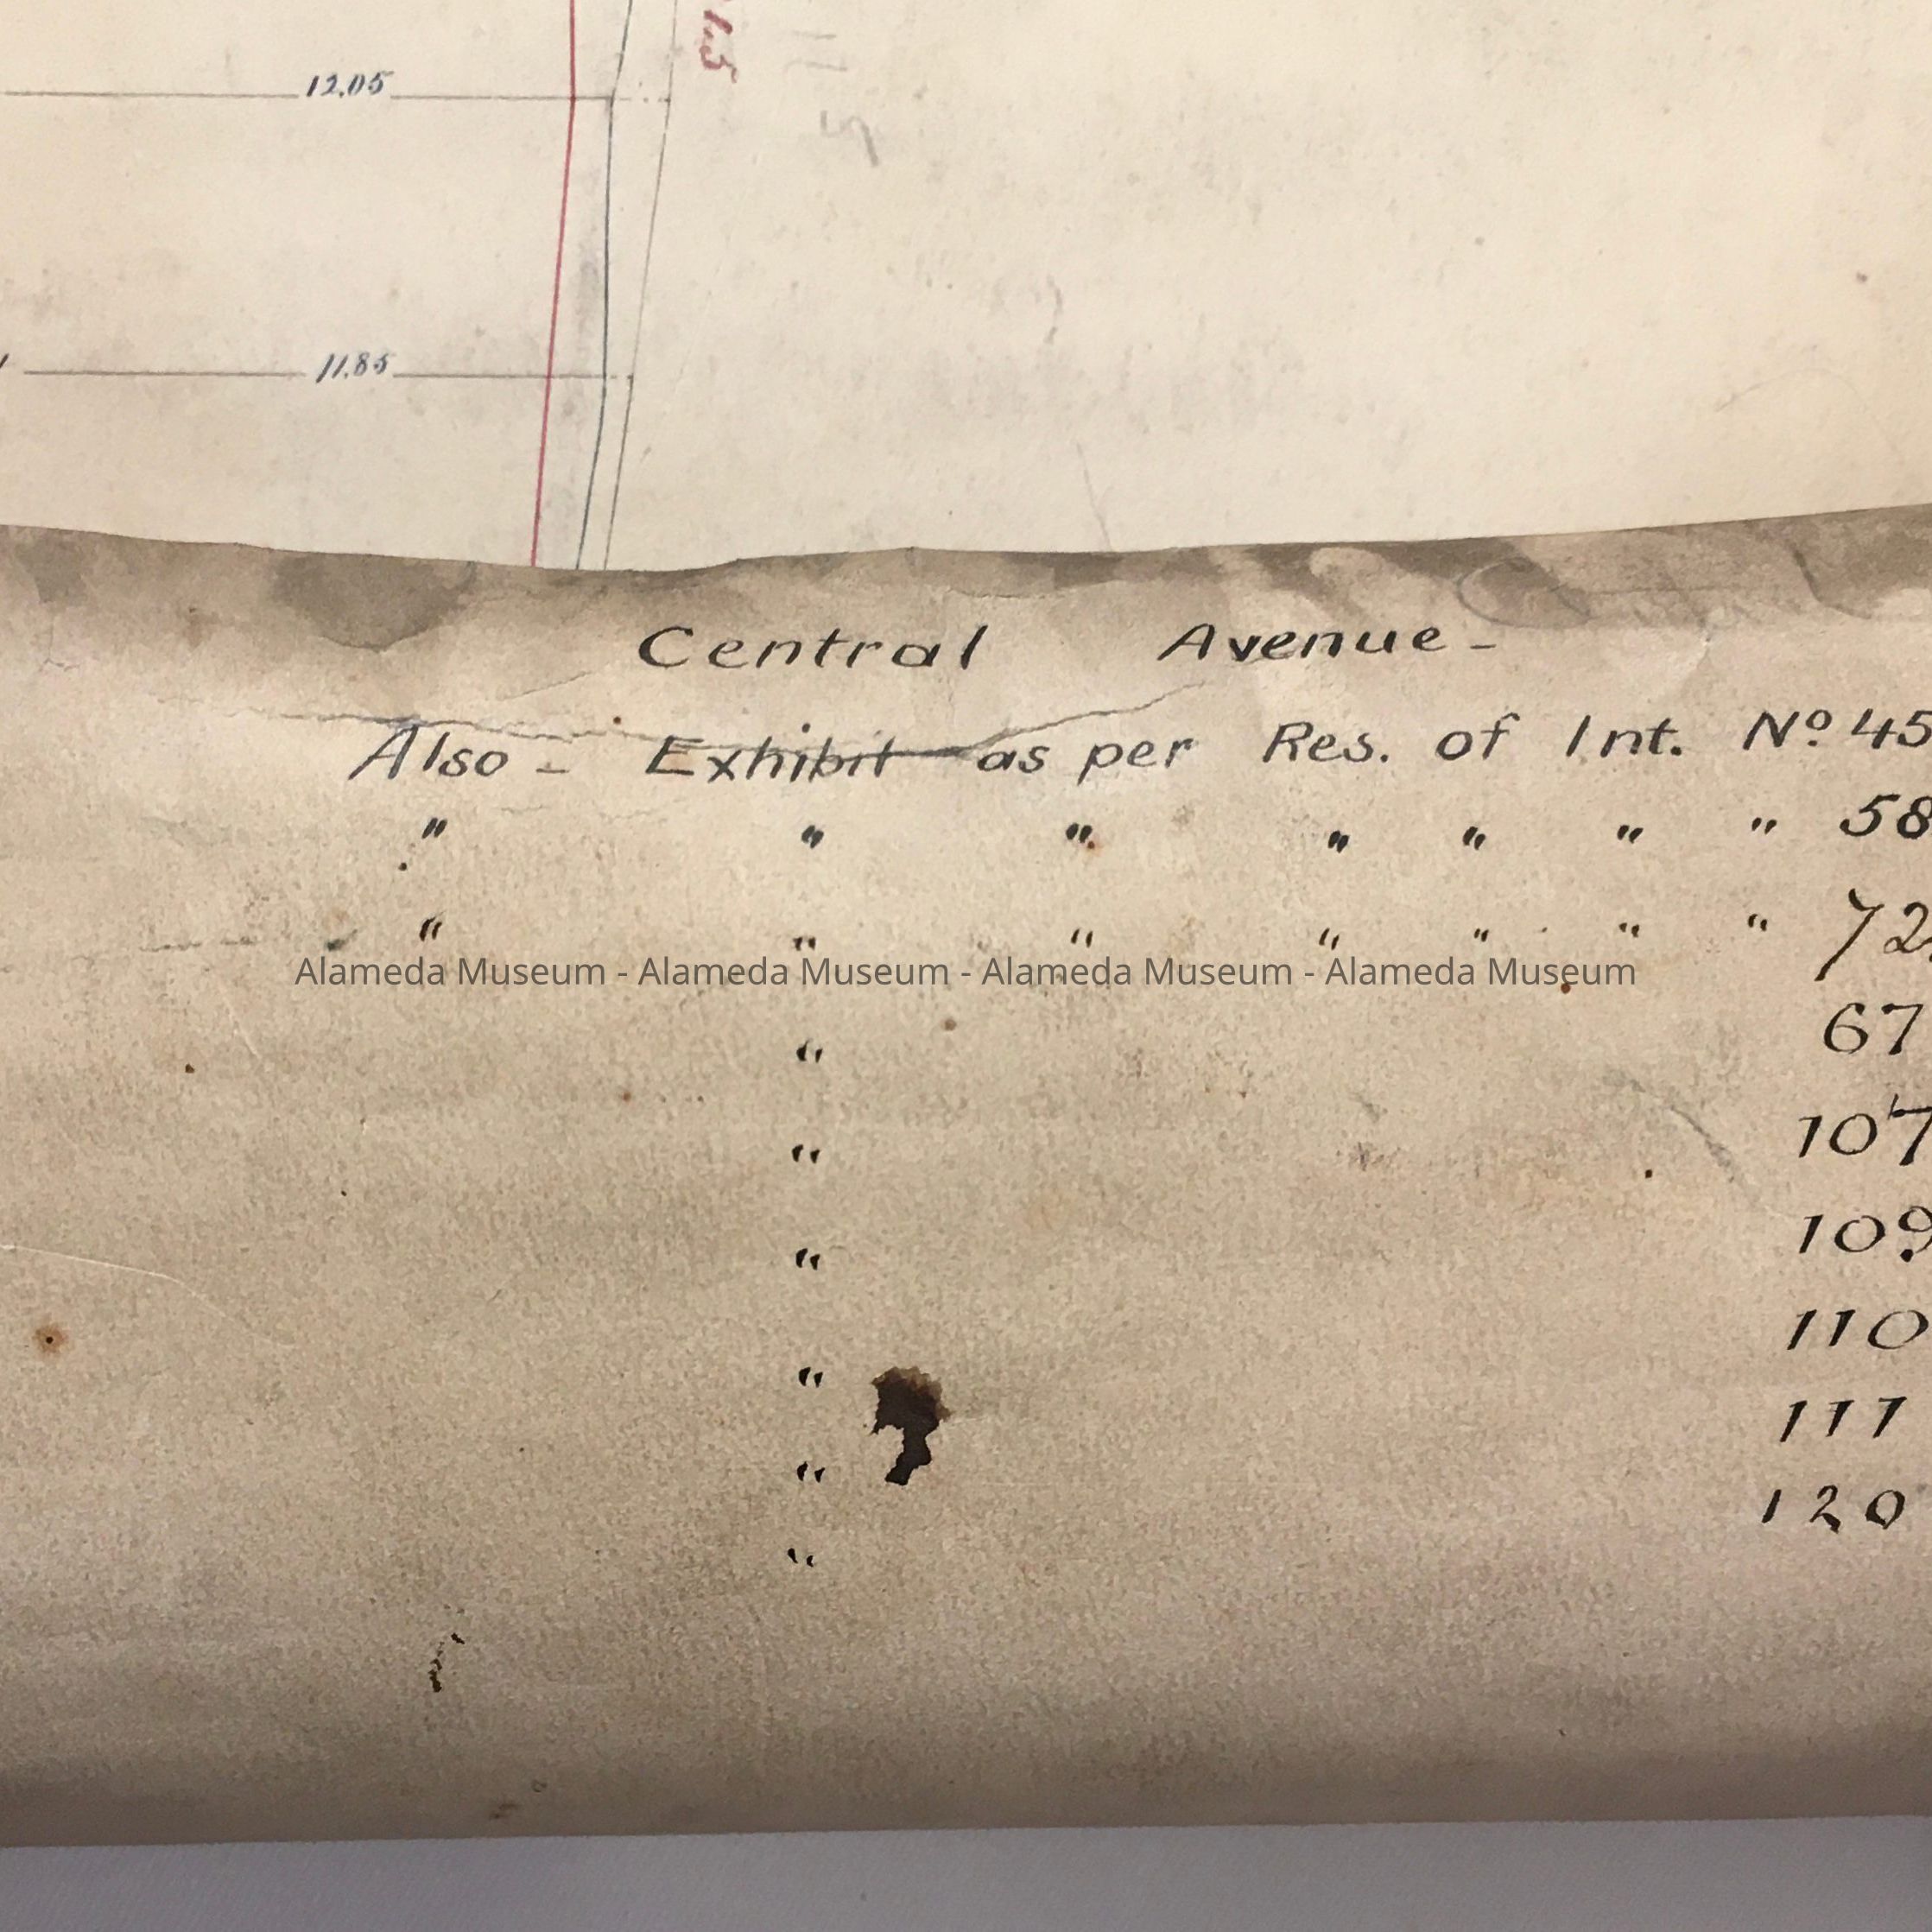 1.5
12.05
11.85
Central Avenue -
Also - Exhibit as per Res. of Int. Nº 45
" " " " " " " 58
" " " " " " " 72
Alameda Museum - Alameda Museum - Alameda Museum - Alameda Museum
" 67
" 107
" 109
" 110
" 111
" 120